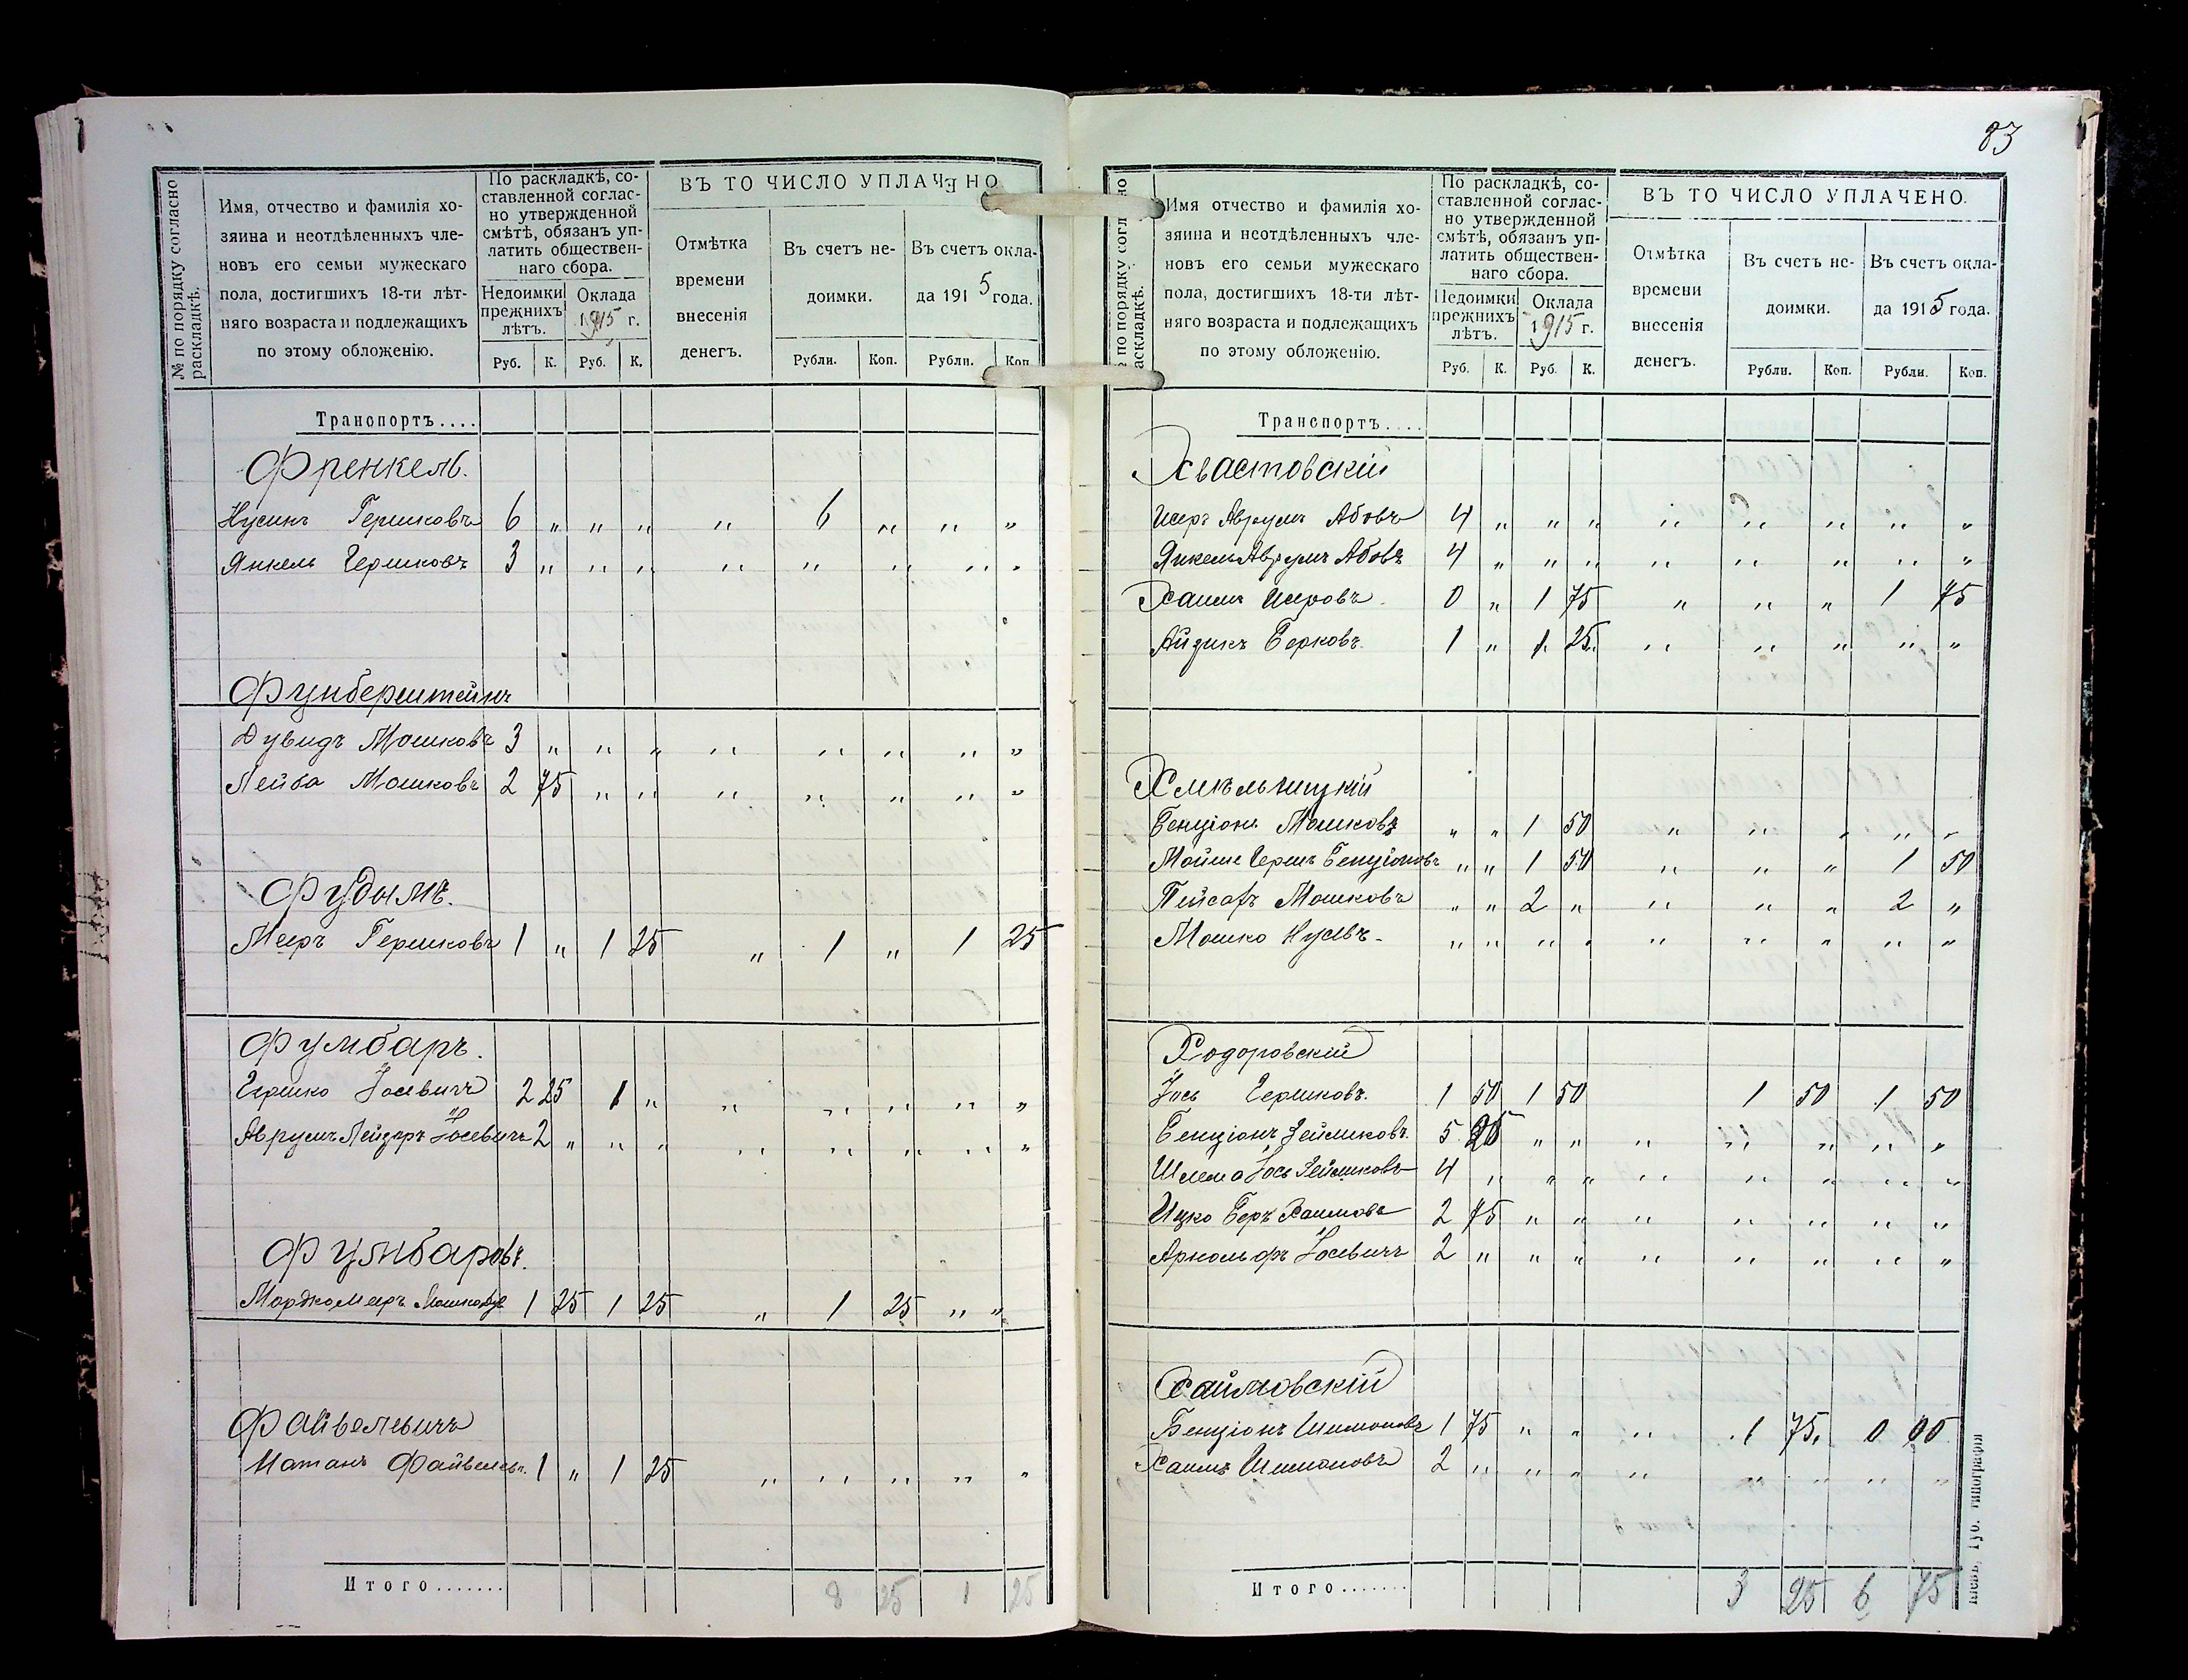 № по порядку согласно раскладкѣ.
Имя, отчество и фамилія хо-
зяина и неотдѣленныхъ чле-
новъ его семьи мужескаго
пола, достигшихъ 18-ти лѣт-
няго возраста и подлежащихъ
по этому обложенію.
По раскладкѣ, со-
ставленной соглас-
но утвержденной
смѣтѣ, обязанъ уп-
латить обществен-
наго сбора.
Недоимки прежнихъ лѣтъ.
Оклада 1915 г.
Руб. К. Руб. К.
ВЪ ТО ЧИСЛО УПЛАЧЕНО
Отмѣтка
времени
внесенія
денегъ.
Въ счетъ не-
доимки.
Въ счетъ окла-
да 1915 года.
Рубли. Коп. Рубли. Коп.
Транспортъ....
Френкель.
Нусинъ Гершковъ 6 „ „ „ „ 6 „ „ „
Янкель Гершковъ 3 „ „ „ „ „ „ „ „
Фунберштейнъ
Дувидъ Мошковъ 3 „ „ „ „ „ „ „ „
Лейба Мошковъ 2 75 „ „ „ „ „ „ „
Фудымъ.
Меръ Гершковъ 1 „ 1 25 „ 1 „ 1 25
Фумбаръ.
Гершко Іосевичъ 2 25 1 „ „ „ „ „ „
Аврумъ Лейзеръ Іосевичъ 2 „ „ „ „ „ „ „ „
Фумбаровъ.
Мордко Мееръ Мошковъ 1 25 1 25 „ 1 25 „ „
Файвелевичъ
Натанъ Файвелев. 1 „ 1 25 „ „ „ „ „
Итого....... 8 25 1 25
83
№ по порядку согласно раскладкѣ.
Имя отчество и фамилія хо-
зяина и неотдѣленныхъ чле-
новъ его семьи мужескаго
пола, достигшихъ 18-ти лѣт-
няго возраста и подлежащихъ
по этому обложенію.
По раскладкѣ, со-
ставленной соглас-
но утвержденной
смѣтѣ, обязанъ уп-
латить обществен-
наго сбора.
Недоимки прежнихъ лѣтъ.
Оклада 1915 г.
Руб. К. Руб. К.
ВЪ ТО ЧИСЛО УПЛАЧЕНО.
Отмѣтка
времени
внесенія
денегъ.
Въ счетъ не-
доимки.
Въ счетъ окла-
да 1915 года.
Рубли. Коп. Рубли. Коп.
Транспортъ....
Хвастовскій
Исеръ Аврумъ Абовъ 4 „ „ „ „ „ „ „ „
Янкель Аврумъ Абовъ 4 „ „ „ „ „ „ „ „
Хаимъ Исеровъ 0 „ 1 75 „ „ „ 1 75
Айзикъ Берковъ. 1 „ 1 25 „ „ „ „ „
Хмѣльницкій
Бенціонъ Мошковъ „ „ 1 50 „ „ „ „ „
Мойше Герш Бенціоновъ „ „ 1 50 „ „ „ 1 50
Пейсахъ Мошковъ „ „ 2 „ „ „ „ 2 „
Мошко Нусевъ. „ „ „ „ „ „ „ „ „
Ходоровскій
Іось Гершковъ. 1 50 1 50 1 50 1 50
Бенціонъ Зейликовъ. 5 25 „ „ „ „ „ „ „
Шлема Іось Зейликовъ 4 „ „ „ „ „ „ „ „
Ицко Беръ Хаимовъ 2 75 „ „ „ „ „ „ „
Арнольфъ Іосевичъ 2 „ „ „ „ „ „ „ „
Хаймовскій
Бенціонъ Шимоновъ 1 75 „ „ „ 1 75 0 00
Хаимъ Шимоновъ 2 „ „ „ „ „ „ „ „
Итого....... 3 25 6 75
Губ. типографія